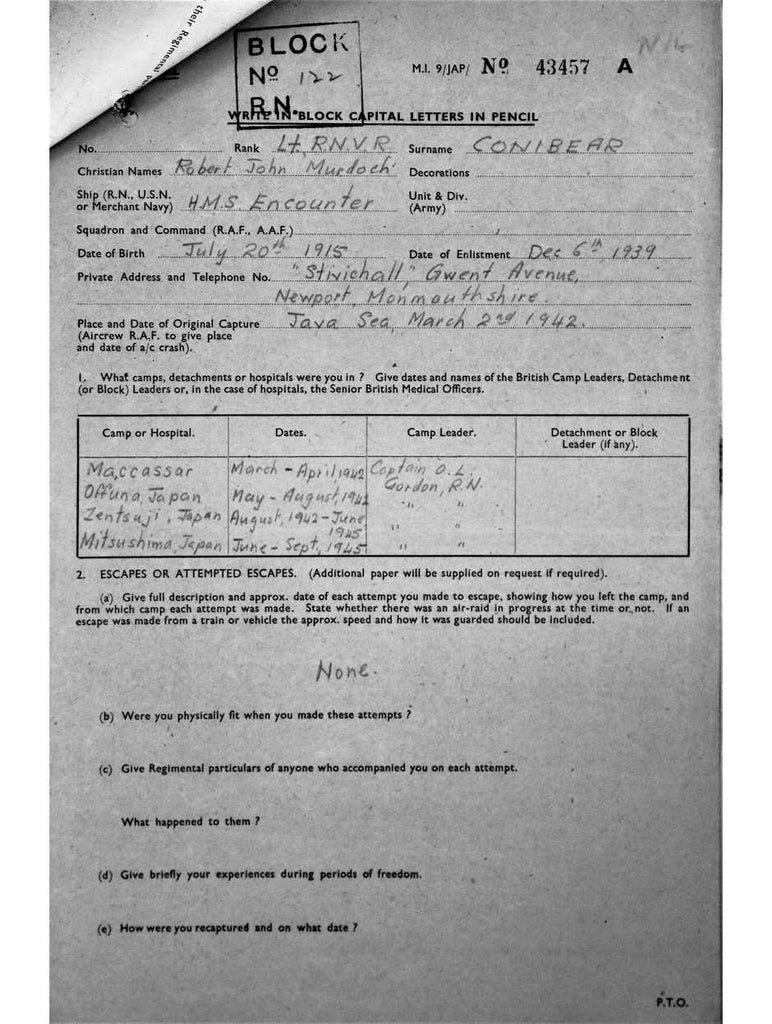 their Regimental pa
BLOCK
Nº 122
R.N.
M.I. 9/JAP/ Nº 43457 A
WRITE IN BLOCK CAPITAL LETTERS IN PENCIL
No. Rank Lt, R.N.V.R. Surname CONIBEAR
Christian Names Robert John Murdoch Decorations
Ship (R.N., U.S.N. or Merchant Navy) H.M.S. Encounter Unit & Div. (Army)
Squadron and Command (R.A.F., A.A.F.)
Date of Birth July 20th 1915 Date of Enlistment Dec 6th, 1939
Private Address and Telephone No. "Stivichall," Gwent Avenue,
Newport, Monmouthshire.
Place and Date of Original Capture Java Sea, March 2nd 1942.
(Aircrew R.A.F. to give place
and date of a/c crash).
1. What camps, detachments or hospitals were you in ? Give dates and names of the British Camp Leaders, Detachment
(or Block) Leaders or, in the case of hospitals, the Senior British Medical Officers.
Camp or Hospital. Dates. Camp Leader. Detachment or Block Leader (if any).
Maccassar March - April 1942 Captain O.L.
Offuna, Japan May - August, 1942 Gordon, R.N.
Zentsuji, Japan August, 1942 - June 1945 " "
Mitsushima, Japan June - Sept, 1945 " "
2. ESCAPES OR ATTEMPTED ESCAPES. (Additional paper will be supplied on request if required).
(a) Give full description and approx. date of each attempt you made to escape, showing how you left the camp, and
from which camp each attempt was made. State whether there was an air-raid in progress at the time or not. If an
escape was made from a train or vehicle the approx. speed and how it was guarded should be included.
None.
(b) Were you physically fit when you made these attempts ?
(c) Give Regimental particulars of anyone who accompanied you on each attempt.
What happened to them ?
(d) Give briefly your experiences during periods of freedom.
(e) How were you recaptured and on what date ?
P.T.O.